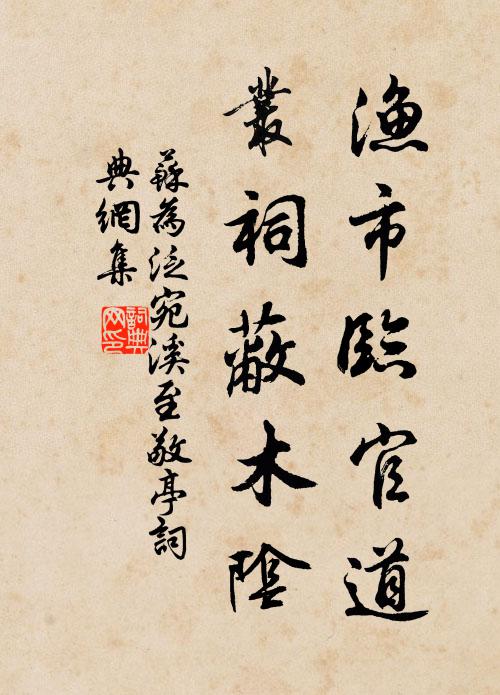 漁市臨官道
叢祠蔽木陰
蘇為泛宛溪至敬亭詞
典網集
詞典
网印